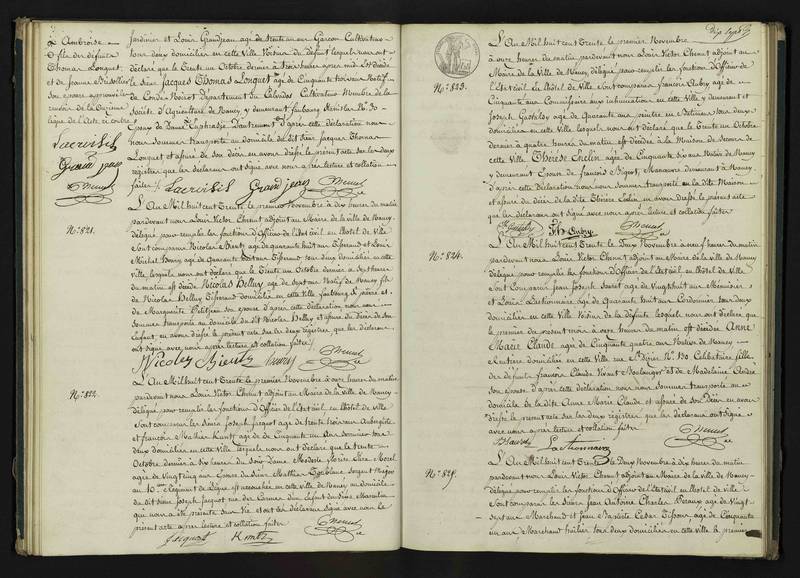 à Ambroise
& fils des défunts
Thomas Lonquet
et de Jeanne
son épouse approuvée
renvoi de la onzième
ligne de l'acte ci contre
Lacretelle
Grandjean
Jardinier et Louis Grandjean agé de trente un ans Garçon Cultivateur
tous deux domiciliés en cette Ville Voisins du Défunt lesquels nous ont
déclaré que le trente un Octobre dernier à trois heures après midi est décédé
le Sieur Jacques Thomas Lonquet agé de Cinquante trois ans Natif
de Condé Noirot Département du Calvados Cultivateur Membre de la
Société d'Agriculture de Nancy, y demeurant, faubourg
Epoux de Dame d'après cette déclaration nous
nous sommes transporté au domicile du dit Sieur Jacques Thomas
Lonquet et assuré de son décès en avons dressé le présent acte sur les deux
registres que les déclarans ont signé avec nous après lecture et collation
faites
Grandjean
N.° 821.
L'An Mil huit cent Trente le premier Novembre à dix heures du matin
pardevant nous Louis Victor Chenut adjoint au Maire de la Ville de Nancy
délégué pour remplir les fonctions d'Officier de l'état civil en l'hôtel de Ville
sont comparus Nicolas agé de quarante huit ans Tisserand et Louis
Michel Henry agé de Quarante ans Tisserand tous deux domiciliés en cette
ville, lesquels nous ont déclaré que le trente un Octobre dernier à sept heures
du matin est décédé Nicolas Helluy agé de sept ans Natif de Nancy fils
de Nicolas Helluy Tisserand domicilié en cette Ville faubourg St pierre et
de Marguerite Petitjean son épouse d'après cette déclaration nous nous
sommes transporté au domicile du dit Nicolas Helluy et assuré du décès de son
Enfant, en avons dressé le présent acte sur les deux registres, que les déclarans
ont signé avec nous après lecture et collation faites
Nicolas Henry
N.° 822.
L'An Mil huit cent Trente le premier Novembre à onze heures du matin
pardevant nous Louis Victor Chenut adjoint au Maire de la Ville de Nancy
délégué pour remplir les fonctions d'Officier de l'état civil, en l'hôtel de Ville
sont comparus les Sieurs Joseph Jacquot agé de trente trois ans Aubergiste
et François Mathier Kuntz agé de Cinquante un ans tous
deux domiciliés en cette Ville lesquels nous ont déclaré que le trente
Octobre dernier à dix heures du soir Dame Modeste
agée de Vingt cinq ans Epouse du Sieur Mathier Sergent Major
au 10.me Régiment de Ligne est accouchée en cette ville de Nancy au domicile
du dit Sieur Joseph Jacquot rue des Carmes d'un Enfant du sexe Masculin
qui nous a été présenté sans vie et ont les déclarans signé avec nous le
présent acte après lecture et collation faites
Jacquot Kuntz
N.° 823.
L'An Mil huit cent Trente le premier Novembre
à onze heures du matin pardevant nous Louis Victor Chenut adjoint au
Maire de la Ville de Nancy délégué pour remplir les fonctions d'Officier de
l'état civil en l'hôtel de Ville sont comparus François Aubry agé de
Cinquante ans Commissaire aux inhumations en cette Ville y demeurant et
Joseph agé de Quarante ans, peintre en Bâtimens tous deux
domiciliés en cette Ville, lesquels nous ont déclaré que le trente un Octobre
dernier à quatre heures du matin est décédée à la Maison de Secours de
cette Ville Thérèse agée de Cinquante six ans Native de Nancy
y demeurant Epouse de François Bigot, Manœuvre demeurant à Nancy
d'après cette déclaration nous nous sommes transporté en la dite Maison
et assuré du décès de la dite Thérèse en avons dressé le présent acte
que les déclarans ont signé avec nous après lecture et collation faites
Aubry
N.° 824.
L'An Mil huit cent Trente le Deux Novembre à neuf heures du matin
pardevant nous Louis Victor Chenut adjoint au Maire de la Ville de Nancy
délégué pour remplir les fonctions d'Officier de l'état civil en l'hôtel de Ville
sont comparus Jean Joseph agé de Vingt huit ans Menuisier
et Louis Lactionnaire agé de Quarante huit ans Cordonnier tous deux
domiciliés en cette Ville Voisins de la défunte lesquels nous ont déclaré que
le premier du présent mois à onze heures du matin est décédée Anne
Marie Claude agée de Cinquante quatre ans Native de Nancy
Rentière domiciliée en cette Ville rue St Dizier N.° 130 Célibataire fille
des défunts François Claude Vivant Boulanger et de Madeleine André
son épouse d'après cette déclaration nous nous sommes transporté au
domicile de la dite Anne Marie Claude et assuré de son Décès en avons
dressé le présent acte sur les deux registres que les déclarans ont signé
avec nous après lecture et collation faites
Lactionnaire
N.° 825.
L'An Mil huit cent Trente le Deux Novembre à dix heures du matin
pardevant nous Louis Victor Chenut adjoint au Maire de la Ville de Nancy
délégué pour remplir les fonctions d'Officier de l'état civil en l'hôtel de Ville
sont comparus les Sieurs Jean Antoine Charles agé de Vingt
sept ans Marchand et Jean Baptiste César Tisson agé de Cinquante
un ans Marchand huilier tous deux domiciliés en cette Ville le premier